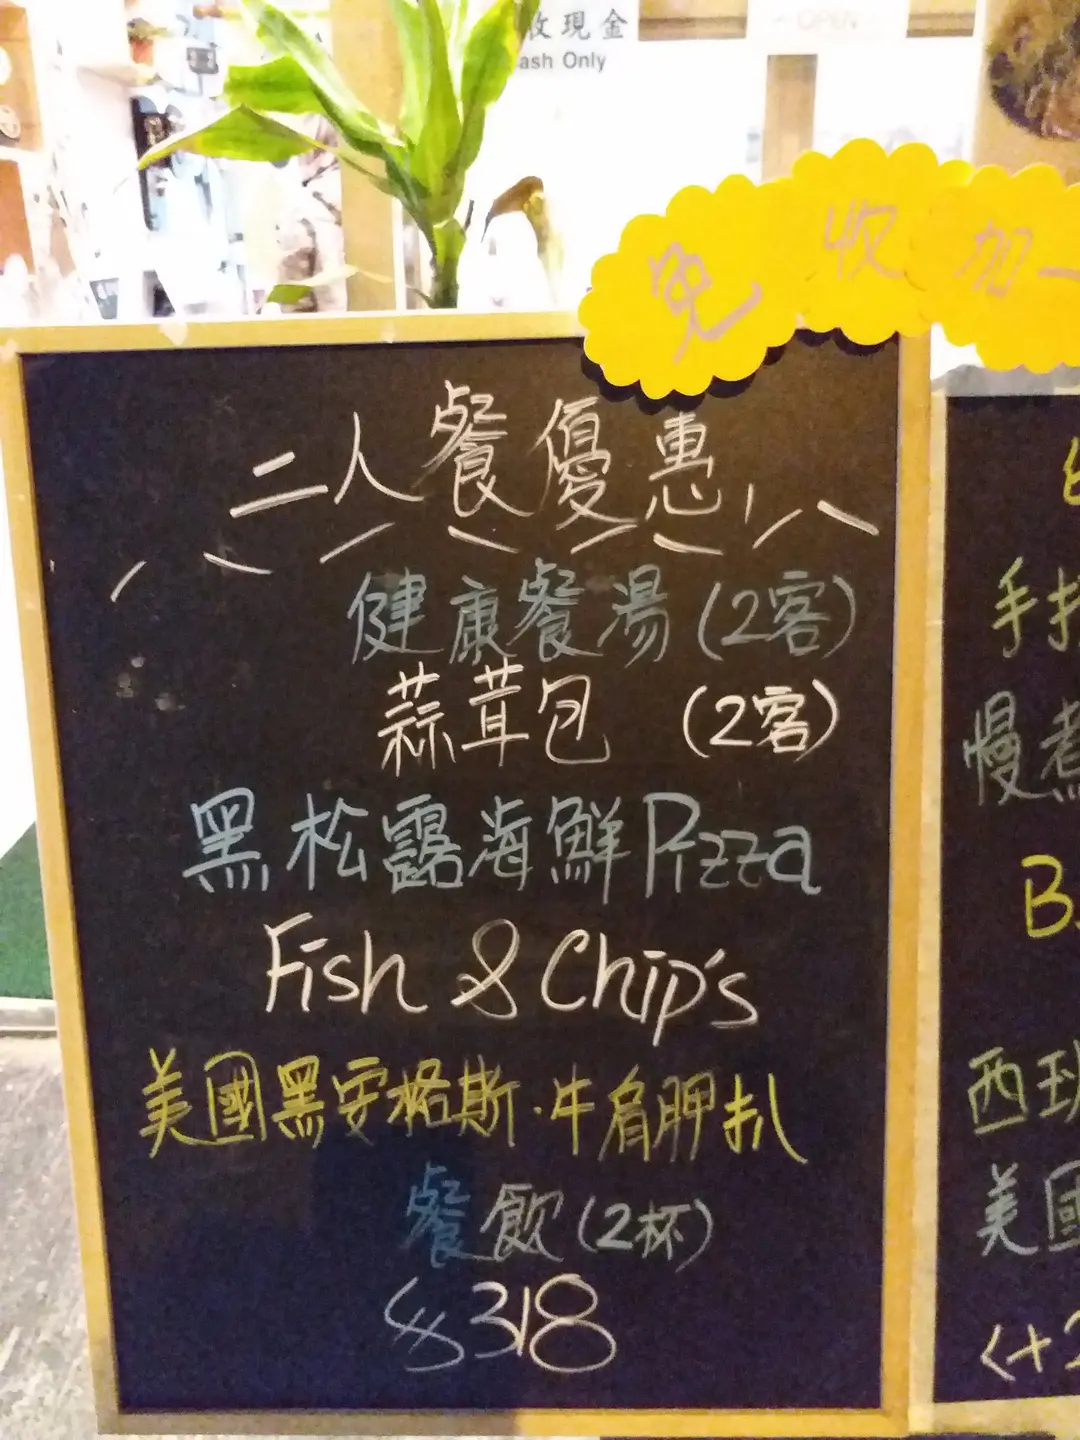 收現金
ash Only
OPEN
免收加一
二人餐優惠
健康餐湯(2客)
蒜茸包 (2客)
黑松露海鮮Pizza
Fish & Chip's
美國黑安格斯·牛肩胛扒
餐飲(2杯)
$318
手
慢煮
B
西班
美國
(+2